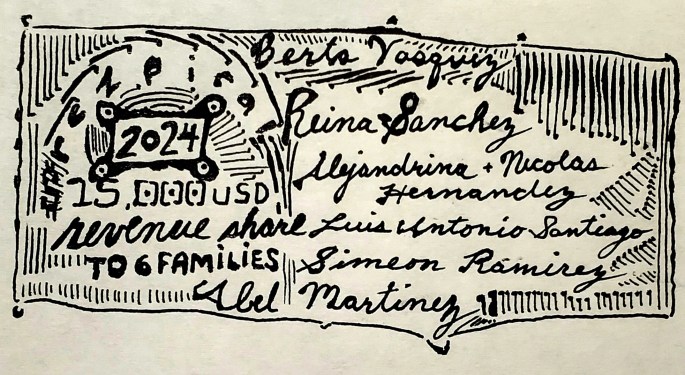 2024
15,000 USD
revenue share
TO 6 FAMILIES
Berta Vasquez
Reina Sanchez
Alejandrina + Nicolas
Hernandez
Luis Antonio Santiago
Simeon Ramirez
Abel Martinez